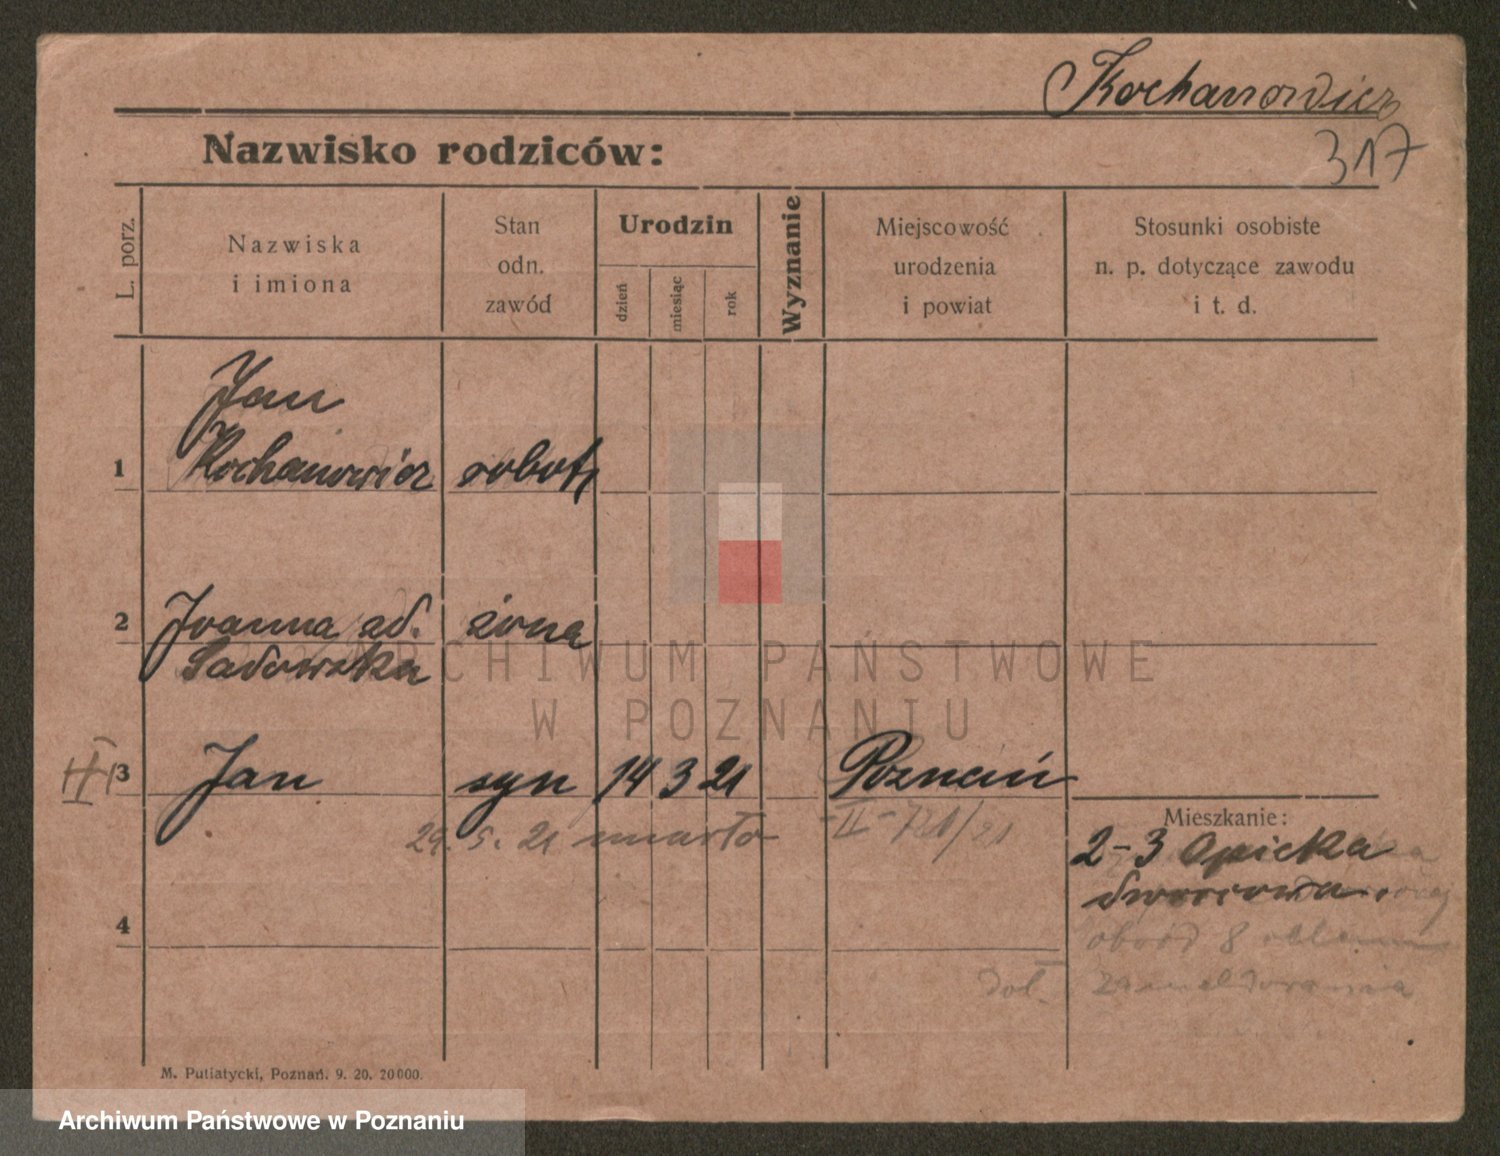 Kochanowicz
317
Nazwisko rodziców:
L. porz.
Nazwiska
i imiona
Stan
odn.
zawód
Urodzin
dzień
miesiąc
rok
Wyznanie
Miejscowość
urodzenia
i powiat
Stosunki osobiste
n. p. dotyczące zawodu
i t. d.
Jan
1 Kochanowicz robot.
2 Joanna zd. żona
Sadowska
ARCHIWUM PAŃSTWOWE
W POZNANIU
II 3 Jan syn 14 3 21 Poznań
29. 5. 21 umarło -II- 721/21
Mieszkanie:
2-3 Opieka
dworcowa.
4
obród 8
zameldowania
M. Putiatycki, Poznań. 9. 20. 20000.
Archiwum Państwowe w Poznaniu